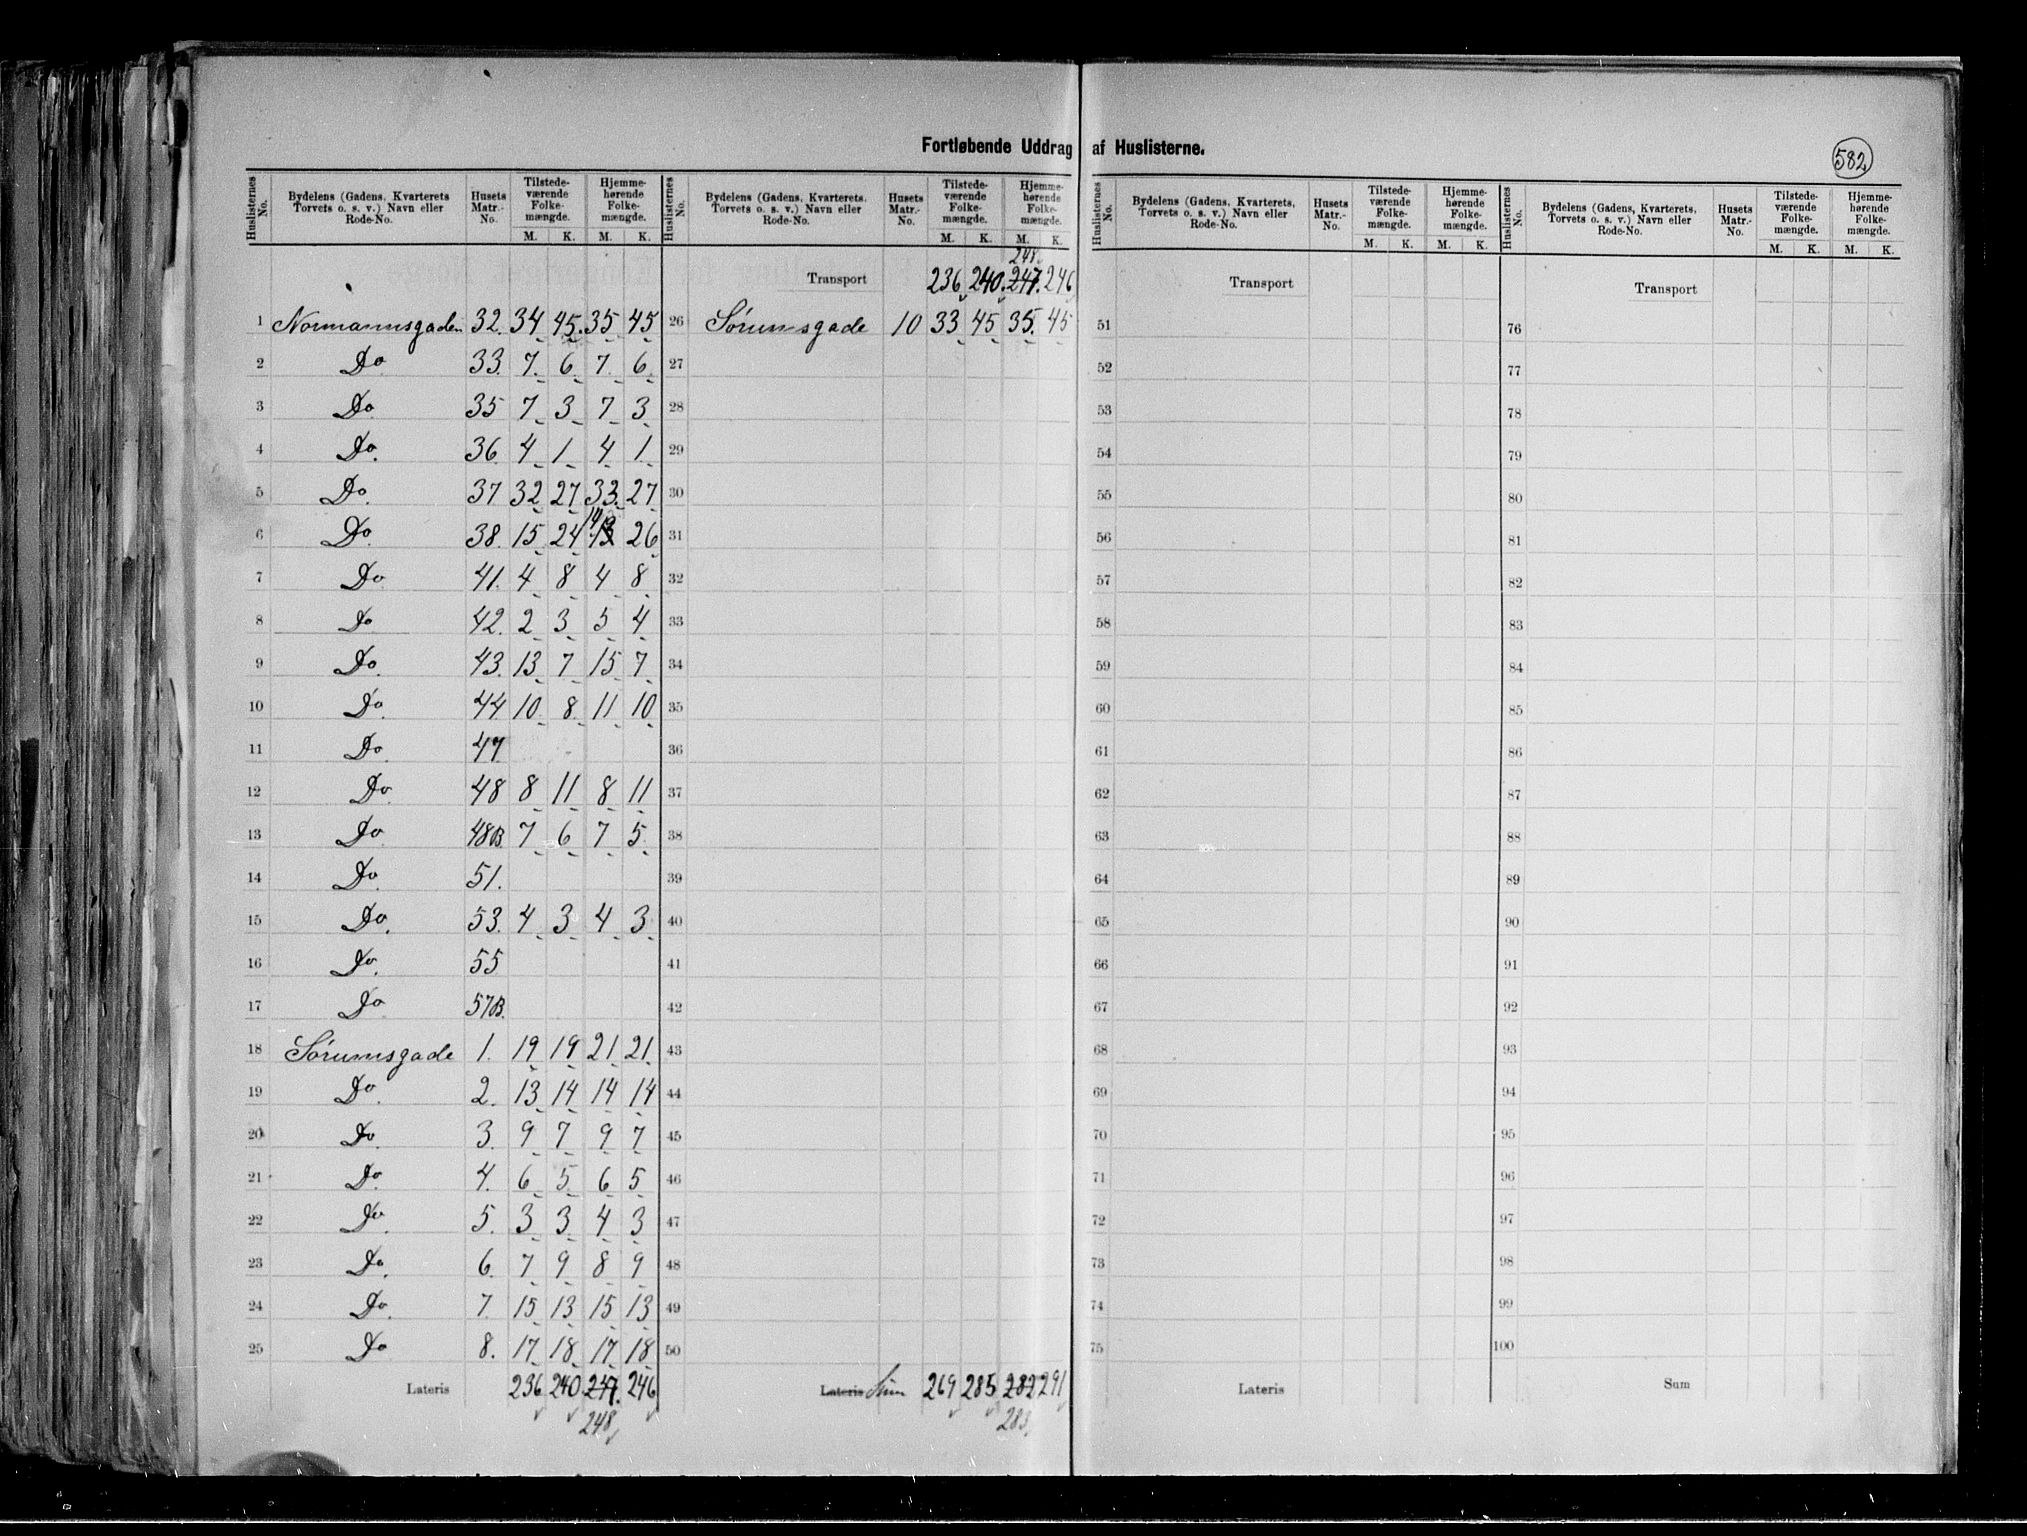 Fortløbende Uddrag af Huslisterne.
582
Huslisternes No. | Bydelens (Gadens, Kvarterets Torvets o. s. v.) Navn eller Rode-No. | Husets Matr.-No. | Tilstedeværende Folkemængde. M. K. | Hjemmehørende Folkemængde. M. K.
1 Normannsgaden 32. 34 45. 35 45
2 Do 33. 7. 6. 7. 6.
3 Do. 35 7 3 7 3
4 Do. 36. 4 1 4 1.
5 Do. 37 32 27 33. 27
6 Do. 38. 15 24 14 13 26
7 Do 41. 4 8 4 8
8 Do 42. 2 3 5 4
9 Do. 43. 13 7 15 7
10 Do. 44 10 8. 11 10
11 Do. 47
12 Do. 48 8 11 8 11
13 Do 48B. 7 6 7 5.
14 Do. 51.
15 Do. 53. 4 3 4 3
16 Do. 55
17 Do 57B.
18 Sørumsgade 1. 19 19 21 21.
19 Do. 2. 13 14 14 14
20 Do. 3. 9 7 9 7
21 Do. 4. 6 5 6 5
22 Do. 5. 3 3 4 3
23 Do. 6. 7 9 8 9
24 Do. 7. 15 13 15 13
25 Do 8. 17 18 17 18
Lateris 236 240 247. 246
248
Huslisternes No. | Bydelens (Gadens, Kvarterets Torvets o. s. v.) Navn eller Rode-No. | Husets Matr.-No. | Tilstedeværende Folkemængde. M. K. | Hjemmehørende Folkemængde. M. K.
248
Transport 236 240. 247. 246
26 Sørumsgade 10 33 45 35. 45
27
28
29
30
31
32
33
34
35
36
37
38
39
40
41
42
43
44
45
46
47
48
49
50
Lateris Sum 269 285 282 291
283
Huslisternes No. | Bydelens (Gadens, Kvarterets, Torvets o. s. v.) Navn eller Rode-No. | Husets Matr.-No. | Tilstedeværende Folkemængde. M. K. | Hjemmehørende Folkemængde. M. K.
Transport
51
52
53
54
55
56
57
58
59
60
61
62
63
64
65
66
67
68
69
70
71
72
73
74
75
Lateris
Huslisternes No. | Bydelens (Gadens, Kvarterets, Torvets o. s. v.) Navn eller Rode-No. | Husets Matr.-No. | Tilstedeværende Folkemængde. M. K. | Hjemmehørende Folkemængde. M. K.
Transport
76
77
78
79
80
81
82
83
84
85
86
87
88
89
90
91
92
93
94
95
96
97
98
99
100
Sum